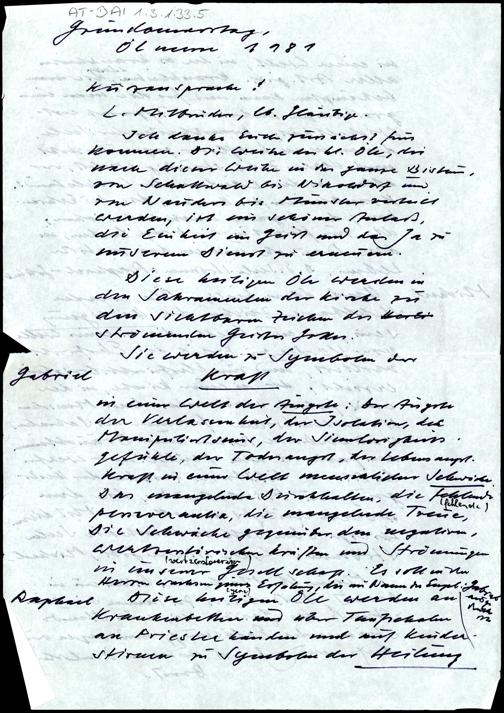 AT-DAI 1.3.1.33.5
Gründonnerstag,
Ölmesse 1981
Kurzansprache!
L. Mitbrüder, lb. Gläubige.
Ich danke Euch zunächst fürs
Kommen. Die Weihe der hl. Öle, die
nach dieser Weihe in der ganzen Diözese,
von Schattwald bis Nikolsdorf und
von Nauders bis Münster verteilt
werden, ist ein schöner Anlaß,
die Einheit im Geist und das Ja zu
unserem Dienst zu erneuern.
Diese heiligen Öle werden in
den Sakramenten der Kirche zu
den sichtbaren Zeichen des
strömenden Geistes Gottes.
Sie werden zu Symbolen der
Gabriel Kraft
in einer Welt der Ängste: Der Ängste
der Verlassenheit, der Isolation, des
Manipuliertseins, der Sinnlosigkeits-
gefühle, der Todesangst, der Lebensangst.
Kraft in einer Welt menschlicher Schwäche:
Das mangelnde Durchhalten, die fehlende
(fehlende)
perseverantia, die mangelnde Treue,
Die Schwäche gegenüber den negativen,
Kräften und Strömungen
in unserer Gesellschaft. Es soll in den
Herren wachsen jene
Raphael Diese heiligen Öle werden an
Krankenbetten und über Taufschalen
an Priesterhänden und auf Kinder-
stirnen zu Symbolen der Heilung